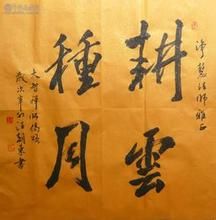 淨慧法師雅正
耕雲
種月
大智禪師偈頌
歲次辛卯朝東書